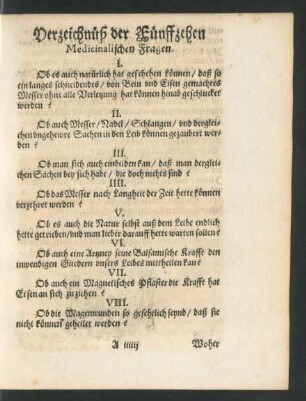 Verzeichnüß der Fünffzehen
Medicinalischen Fragen.
I.
Ob es auch natürlich hat geschehen können / daß so
ein langes schneidendes / von Bein und Eisen gemachtes
Messer ohne alle Verletzung hat können hinab geschlucket
werden ?
II.
Ob auch Messer / Nadel / Schlangen / und dergleichen
ungehewre Sachen in den Leib können gezaubert werden
den ?
III.
Ob man sich auch einbilden kan / daß man dergleichen
chen Sachen bey sich habe / die doch nichts sind ?
IIII.
Ob das Messer nach Langheit der Zeit hette können
verzehret werden ?
V.
Ob es auch die Natur selbst auß dem Leibe endlich
hette getrieben / und man lieber darauff hette warten sollen ?
VI.
Ob auch eine Artzney seine Balsamische Krafft den
inwendigen Gliedern unsers Leibes mittheilen kan ?
VII.
Ob auch ein Magnetisches Pflaster die Krafft hat
Eisen an sich zu ziehen ?
VIII.
Ob die Magenwunden so gefehrlich seynd / daß sie
nicht können geheilet werden ?
A iiiij Woher